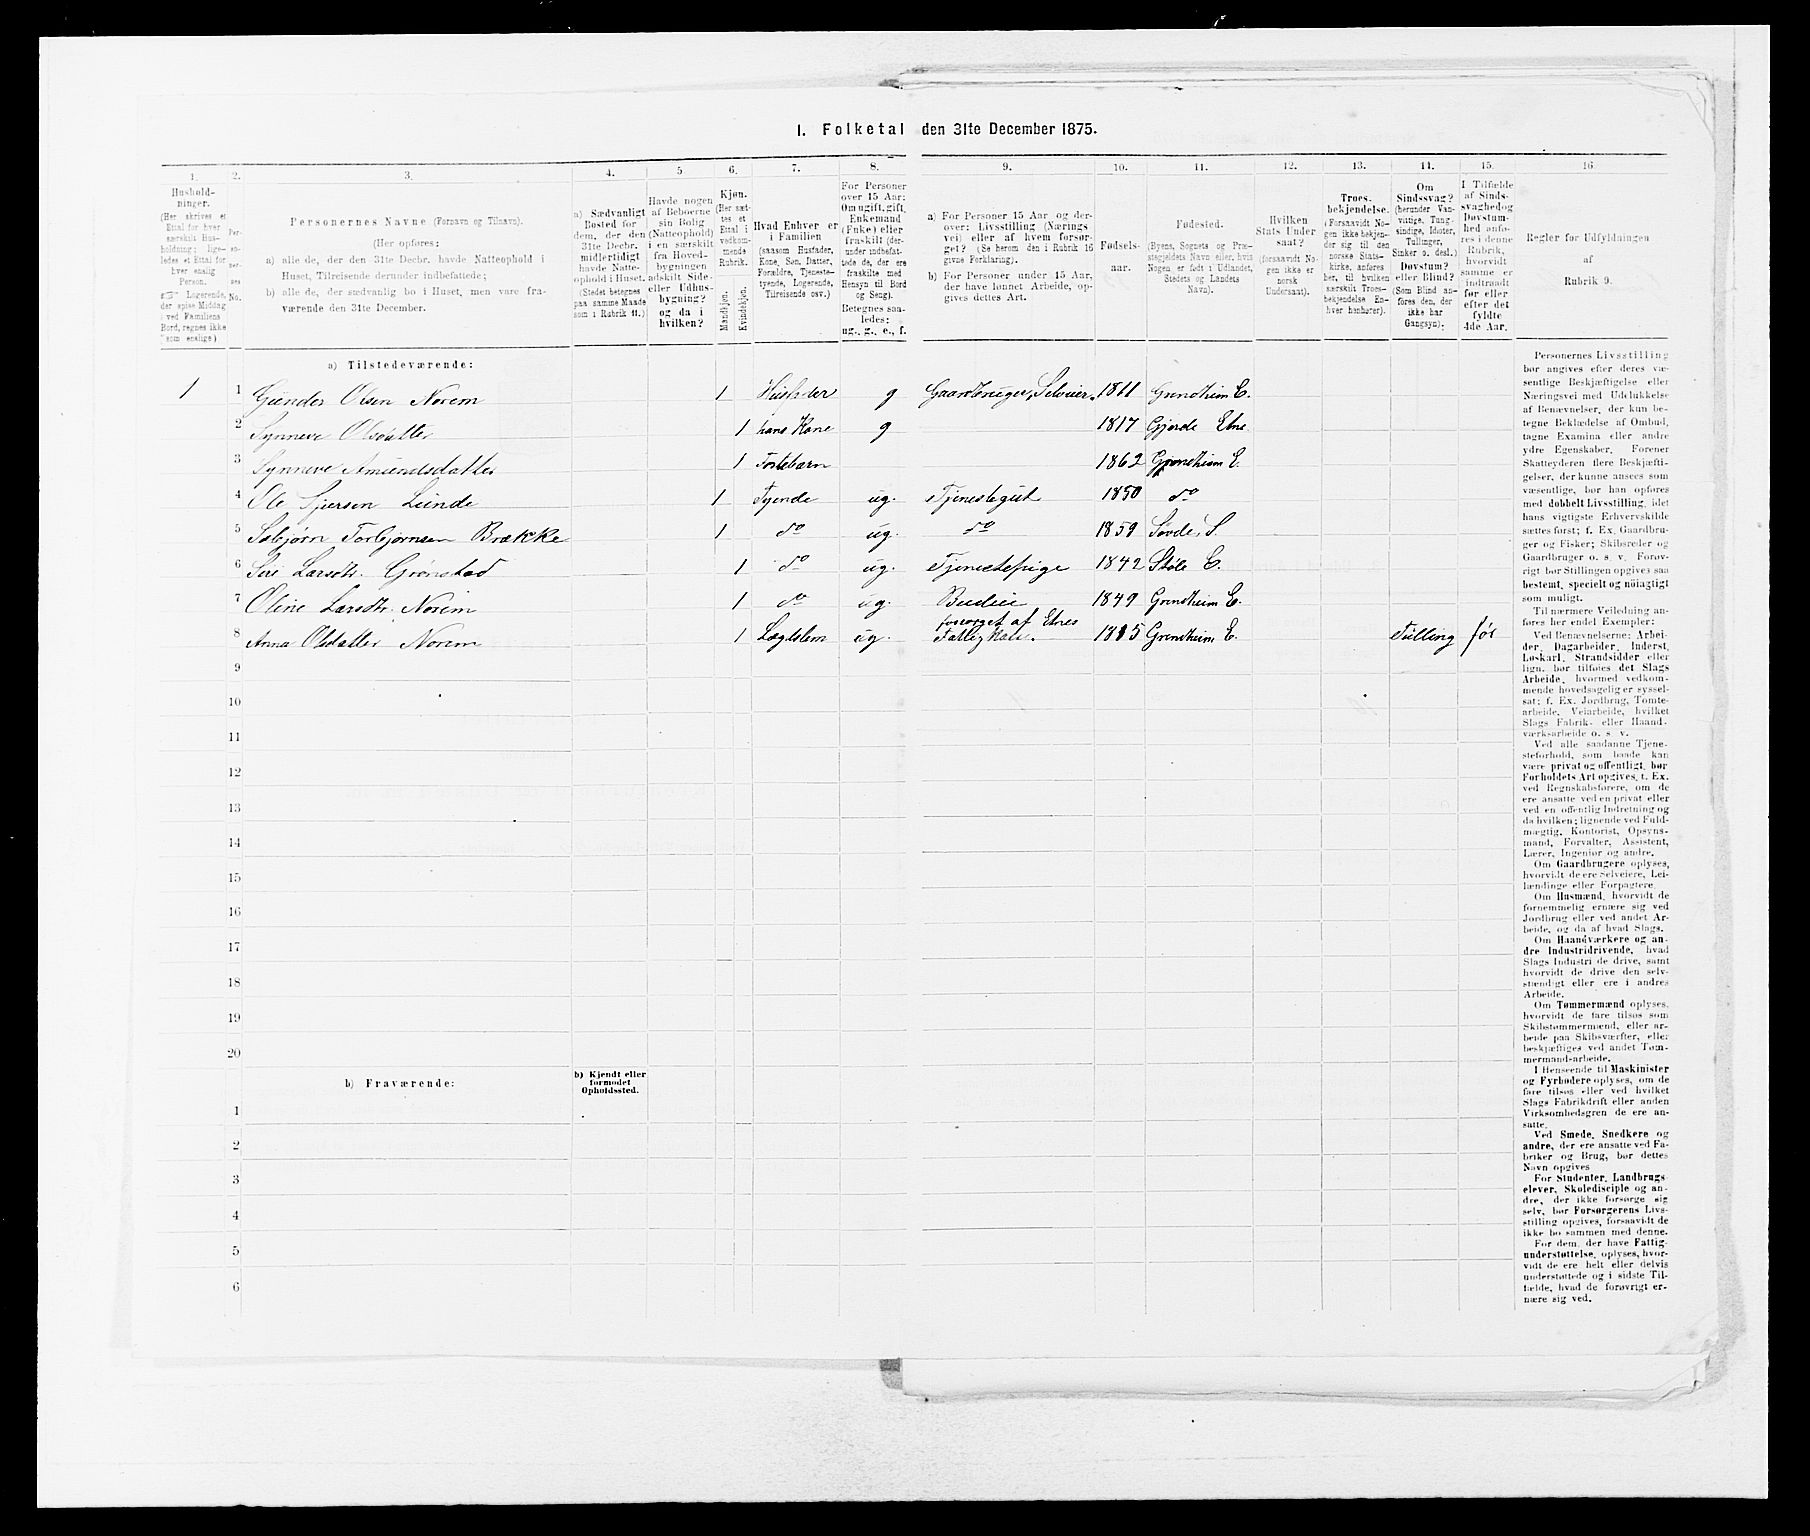 1. Folketal den 31te December 1875.
1. 2. 3. 4. 5 6. 7. 8. 9. 10. 11. 12. 13. 14. 15. 16
Husholdninger.
(Her skrives et Ettal for hver særskilt Husholdning; ligeledes et Ettal for hver enslig Person.
Logerende, der spise Middag i ved Familiens Bord, regnes ikke som enslige.)
Personernes No.
Personernes Navne (Fornavn og Tilnavn).
(Her opføres:
a) alle de, der den 31te Decbr. havde Natteophold i
Huset, Tilreisende derunder indbefattede;
b) alle de, der sædvanlig bo i Huset, men vare fra-
værende den 31te December.
a) Sædvanligt
Bosted for
dem, der den
31te Decbr.
midlertidigt
havde Natte-
ophold i Huset.
(Stedet betegnes
paa samme Maade
som i Rubrik 11.)
Havde nogen
af Beboerne
sin Bolig
(Natteophold)
i en særskilt
fra Hoved-
bygningen
adskilt Side-
eller Udhus-
bygning?
og da i
hvilken?
Kjøn.
(Her sæt-
tes et
Ettal i
vedkom-
mende
Rubrik.
Mandkjøn.
Kvindekjøn.
Hvad Enhver er
i Familien
(saasom Husfader,
Kone, Søn, Datter,
Forældre, Tjeneste-
tyende, Logerende,
Tilreisende osv.)
For Personer
over 15 Aar:
Om ugift, gift,
Enkemand
(Enke) eller
fraskilt (der-
under indbefat-
tede de, der ere
fraskilte med
Hensyn til Bord
og Seng).
Betegnes saa-
ledes:
ug., g., e., f.
a) For Personer 15 Aar og der-
over: Livsstilling (Nærings
vei) eller af hvem forsør-
get? (Se herom den i Rubrik 16
givne Forklaring).
b) For Personer under 15 Aar,
der have lønnet Arbeide, op-
gives dettes Art.
Fødsels-
aar.
Fødested.
(Byens, Sognets og Præ-
stegjeldets Navn eller, hvis
Nogen er født i Udlandet,
Stedets og Landets
Navn).
Hvilken
Stats Under
saat?
(forsaavidt No-
gen ikke er
norsk
Undersaat).
Troes-
bekjendelse.
(Forsaavidt No-
gen ikke bekjen-
der sig til den
norske Stats-
kirke, anføres
her, til hvilken
særskilt Troes-
bekjendelse En-
hver henhører).
Om
Sindssvag?
(herunder Van-
vittige, Tung-
sindige, Idioter,
Tullinger,
Sinker o. desl.)
Døvstum?
eller Blind?
(Som Blind an-
føres den, der
ikke har
Gangsyn);
I Tilfælde
af Sinds-
svaghed og
Døvstum-
hed anfø-
res i denne
Rubrik,
hvorvidt
samme er
indtraadt
før eller
efter det
fyldte
4de Aar.
Regler for Udfyldningen
af
Rubrik 9.
a) Tilstedeværende:
1 1 Gunder Olsen Norem 1 Husfader g Gaardbruger, Selveier 1811 Grindheim E.
2 Synneve Olsdatter 1 hans Kone g 1817 Gjerde Etne
3 Synneve Amundsdatter 1 Fostebarn 1862 Grindheim E.
4 Ole Sjursen Lunde 1 Tyende ug. Tjenestegut 1850 do
5 Asbjørn Torbjørnsen Brække 1 do ug. do 1859 Søvde, S.
6 Siri Larsdtr. Grønstad 1 do ug. Tjenestepige 1842 Støle E.
7 Oline Larsdtr. Norem 1 do ug. Budeie 1849 Grindheim E.
8 Anna Olsdatter Norem 1 Lægdslem ug. forsørget af Etnes Fattigkas. 1815 Grindheim E. Tulling før
9
10
11
12
13
14
15
16
17
18
19
20
b) Fraværende:
b) Kjendt eller
formodet
Opholdssted.
1
2
3
4
5
6
Personernes Livsstilling
bør angives efter deres væ-
sentlige Beskjæftigelse eller
Næringsvei med Udelukkelse
af Benævnelser, der kun be-
tegne Beklædelse af Ombud,
tagne Examina eller andre
ydre Egenskaber. Forener
Skatteyderen flere Beskjæfti-
gelser, der kunne ansees som
væsentlige, bør han opføres
med dobbelt Livsstilling, idet
hans vigtigste Erhvervskilde
sættes først; f. Ex. Gaardbru-
ger og Fisker; Skibsreder og
Gaardbruger o. s. v. Forøv-
rigt bør Stillingen opgives saa
bestemt, specielt og nøiagtigt
som muligt.
Til nærmere Veiledning an-
føres her endel Exempler:
Ved Benævnelserne: Arbei-
der, Dagarbeider, Inderst,
Løskarl, Strandsidder eller
lign. bør tilføies det Slags
Arbeide, hvormed vedkom-
mende hovedsagelig er syssel-
sat; f. Ex. Jordbrug, Tomte-
arbeide, Veiarbeide, hvilket
Slags Fabrik- eller Haand-
værksarbeide o. s. v.
Ved alle saadanne Tjene-
steforhold, som baade kan
være privat og offentligt, bør
Forholdets Art opgives, t. Ex.
ved Regnskabsførere, om de
ere ansatte ved en privat eller
ved en offentlig Indretning og
da hvilken; lignende ved Fuld-
mægtig, Kontorist, Opsyns-
mand, Forvalter, Assistent,
Lærer, Ingeniør og andre.
Om Gaardbrugere oplyses,
hvorvidt de ere Selveiere, Lei-
lændinge eller Forpagtere.
Om Husmænd, hvorvidt de
fornemmelig ernære sig ved
Jordbrug eller ved andet Ar-
beide, og da af hvad Slags.
Om Haandværkere og an-
dre Industridrivende, hvad
Slags Industri de drive, samt
hvorvidt de drive den selv-
stændigt eller ere i andres
Arbeide.
Om Tømmermænd oplyses,
hvorvidt de fare tilsøs som
Skibstømmermænd, eller ar-
beide paa Skibsværfter, eller
beskjæftiges ved andet Tøm-
mermandsarbeide.
I Henseende til Maskinister
og Fyrbødere oplyses, om de
fare tilsøs eller ved hvilket
Slags Fabrikdrift eller anden
Virksomhedsgren de ere an-
satte.
Ved Smede, Snedkere og
andre, der ere ansatte ved Fa-
briker og Brug, bør dettes
Navn opgives
For Studenter, Landbrugs-
elever, Skoledisciple og an-
dre, der ikke forsørge sig
selv, bør Forsørgerens Livs-
stilling opgives, forsaavidt de
ikke bo sammen med denne.
For dem, der have Fattig-
understøttelse, oplyses, hvor-
vidt de ere helt eller delvis
understøttede og i sidste Til-
fælde, hvad de forøvrigt er-
nære sig ved.